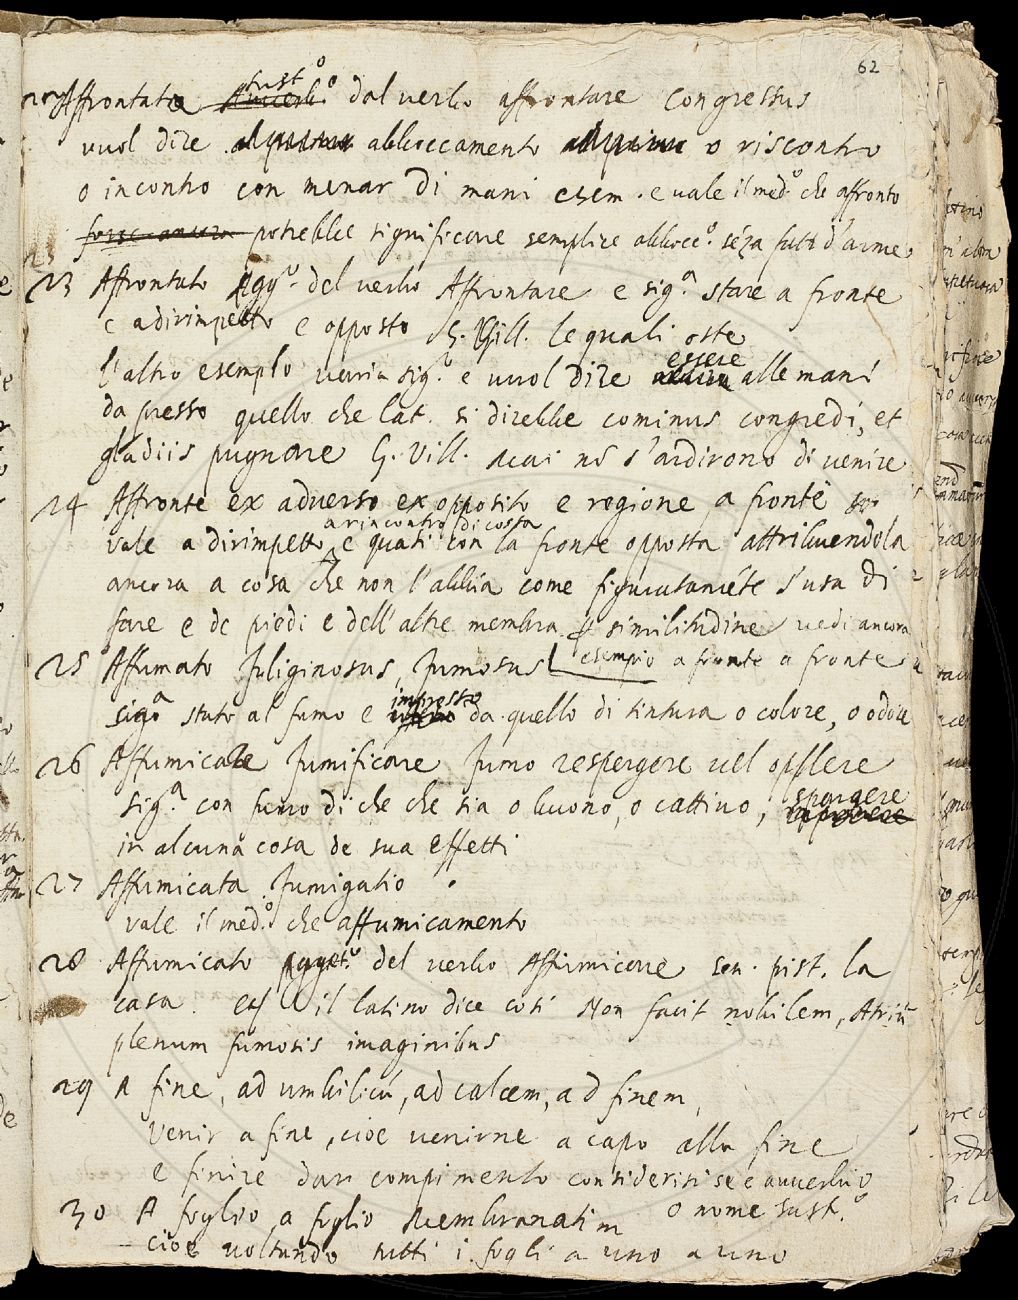 62
Affrontata Avverbio sust.o dal verbo affrontare congressus
vuol dire abboccamento o riscontro
o incontro con menar di mani esem. e vale il med.o che affronto
forse ancora potrebbe significare semplice abbocc.o séza fatti d'arme
23
23 Affrontato Agg.o del verbo Affrontare e sig.a stare a fronte
e adirimpetto e opposto G. Vill. le quali oste
l'altro esemplo varia sig.o e vuol dire essere alle mani
da presso quello che lat. si direbbe cominus congredi, et
gladiis pugnare G. Vill. mai nō s'ardirono di venire
24 Affronte ex adverso ex opposito e regione a fronte
vale a dirimpetto a rincontro di costa e quasi con la fronte opposta attribuendola
ancora a cosa che non l'abbia come figuratamēte s'usa di
fare e de piedi e dell'altre membra p similitudine vedi ancora
esempio a fronte a fronte
25 Affumato fuliginosus, fumosus
sig.a stato al fumo e impresso da quello di tintura o colore, o odore
26 Affumicare fumificare fumo respergere vel opplere
sig.a con fumo di che che sia o buono, o cattivo, spargere
in alcuna cosa de sua effetti
27 Affumicata fumigatio
vale il med.o che affumicamento
28 Affumicato Agget.o del verbo Affumicare sen. pist. la
casa il latino dice cosi Non facit nobilem, Atriū
plenum fumosis imaginibus
29 A fine, ad umbilicū, ad calcem, ad finem,
venir a fine, cioe venirne a capo alla fine
e finire dar compimento considerisi se è avverbio
o nome sust.o
30 A foglio a foglio membranatim
cioè voltando tutti i fogli a uno a uno